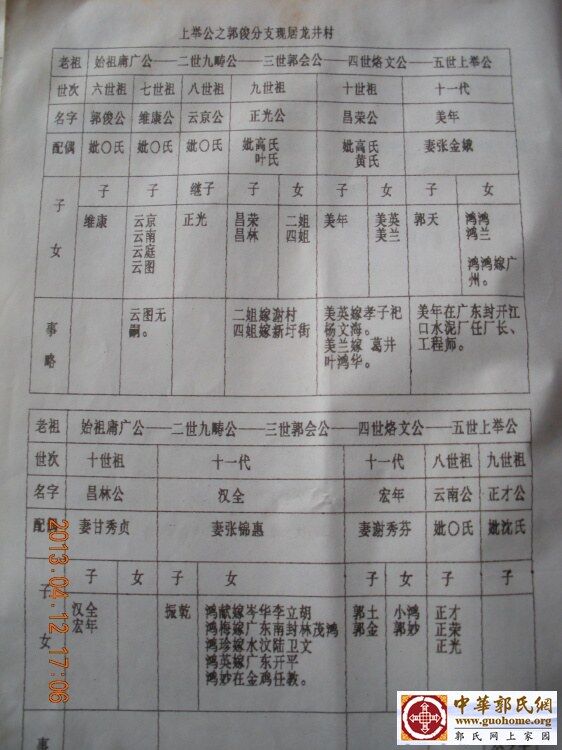 上举公之郭俊分支现居龙井村
老祖 始祖庸广公——二世九畴公——三世郭会公——四世烙文公——五世上举公
世次 六世祖 七世祖 八世祖 九世祖 十世祖 十一代
名字 郭俊公 维康公 云京公 正光公 昌荣公 美年
配偶 妣〇氏 妣〇氏 妣〇氏 妣高氏 妣高氏 妻张金娥
叶氏 黄氏
子女 子 子 继子 子 女 子 女 子 女
维康 云京 正光 昌荣 二姐 美年 美英 郭天 鸿鸿
云南 昌林 四姐 美兰 鸿兰
云庭
云图 鸿鸿嫁广
州。
事略 云图无 二姐嫁谢村 美英嫁孝子祀 美年在广东封开江
嗣。 四姐嫁新圩街 杨文海。 口水泥厂任厂长、
美兰嫁 葛井 工程师。
叶鸿华。
老祖 始祖庸广公——二世九畴公——三世郭会公——四世烙文公——五世上举公
世次 十世祖 十一代 十一代 八世祖 九世祖
名字 昌林公 汉全 宏年 云南公 正才公
配偶 妻甘秀贞 妻张锦惠 妻谢秀芬 妣〇氏 妣沈氏
子女 子 女 子 女 子 女 子 子
汉全 振乾 鸿献嫁岑华李立胡 郭土 小鸿 正才
宏年 鸿梅嫁广东南封林茂鸿 郭金 郭妙 正荣
鸿珍嫁水汶陆卫文 正光
鸿英嫁广东开平
鸿妙在金鸡任教。
事
2013.04.12 17:06
中華郭氏網
www.guohome.org
郭氏网上家园